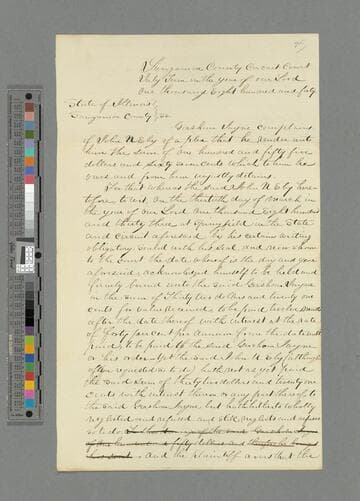 In Sangamon County Circuit Court
July Term in the year of our Lord
One thousand Eight hundred and forty
State of Illinois
Sangamon County ss
Gershom Jayne complains
of John N Eby of a plea that he render unto
him the sum of One hundred and fifty five
dollars and sixty cents which to him he
owes and from him unjustly detains.
For that whereas the said John N Eby here
tofore to wit, on the thirtieth day of March in
the year of our Lord One thousand Eight hundred
and thirty three at Springfield in the State
and Circuit aforesaid, by his certain writing
obligatory, sealed with his seal, and now shown
to the Court the date whereof is the day and year
aforesaid, acknowledged himself to be held and
firmly bound unto the said Gershom Jayne
in the sum of Thirty two dollars and twenty one
cents for value received, to be paid twelve months
after the date thereof with interest at the rate
of forty per cent per annum from the date until
paid, to be paid to the said Gershom Jayne
or his order. Yet the said John N Eby (although
often requested so to do) hath not as yet paid
the said sum of thirty two dollars and twenty one
cents with interest thereon or any part thereof to
the said Gershom Jayne, but hath hitherto wholly
neglected and refused and still neglects and refuses
so to do. To the damage of the said Gershom Jayne
of One hundred & fifty dollars and therefore he brings
his suit. And the plaintiff avers that the